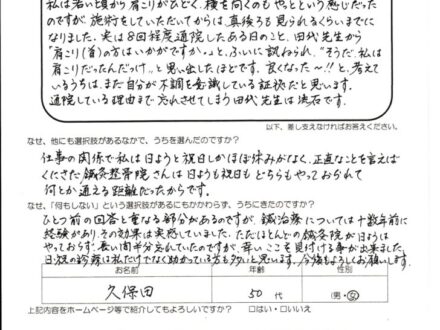 私は若い頃から肩こりがひどく、横を向くのもやっとという感じだった
のですが、施術をしていただいてからは、真後ろも見られるくらいまでに
なりました。実は8回程度通院したある日のこと、田代先生から
「肩こり(首)の方はいかがですか。」と、ふいに訊ねられ、“そうだ、私は
肩こりだったんだっけ”と思い出したほどです。良くなった〜!!と、考えて
いるうちは、まだ自分が不調を意識している証拠だと思います。
通院している理由まで忘れさせてしまう田代先生は流石です。
以下、差し支えなければお答えください。
なぜ、他にも選択肢があるなかで、うちを選んだのですか?
仕事の関係で私は日ようと祝日しかほぼ休みがなく、正直なことを言えば
くにさだ鍼灸整骨院さんは日ようも祝日もどちらもやっておられて
何とか通える距離だったからです。
なぜ、「何もしない」という選択肢があるにもかかわらず、うちにきたのですか?
ひとつ前の回答と重なる部分があるのですが、鍼治療については十数年前に
経験があり、その効果は実感していました。ただほとんどの鍼灸院が日ようは
やっておらず、長い間半分忘れていたのですが、幸いここを見付ける事が出来ました。
日・祝の診療は私だけでなく助かっている方も多いと思います。今後もよろしくお願いします。
お名前 年齢 性別
久保田 50代 (男・女)
上記内容をホームページ等で紹介してもよろしいですか? □はい □いいえ